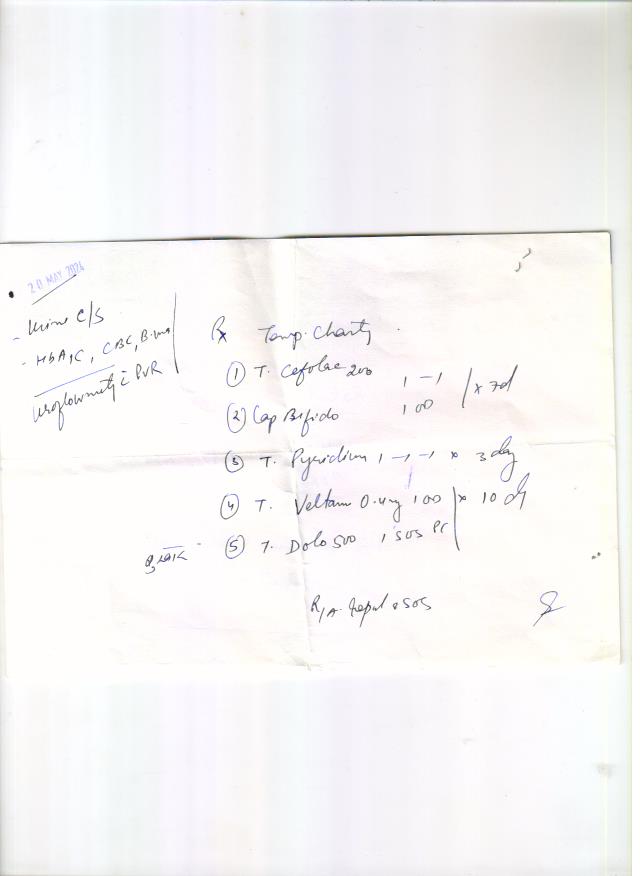 20 MAY 2024
- Urine C/S
- HbA1C, CBC, B.
Uroflowmetry c̄ PVR
Rx Temp. Charty
① T. Cefolac 200 1-1
② Cap Bifido 100 x 7d
③ T. Pyridium 1-1-1 x 3 day
④ T. Veltam 0.4mg 100 x 10 dy
⑤ T. Dolo 500 1 SOS
R/A SOS